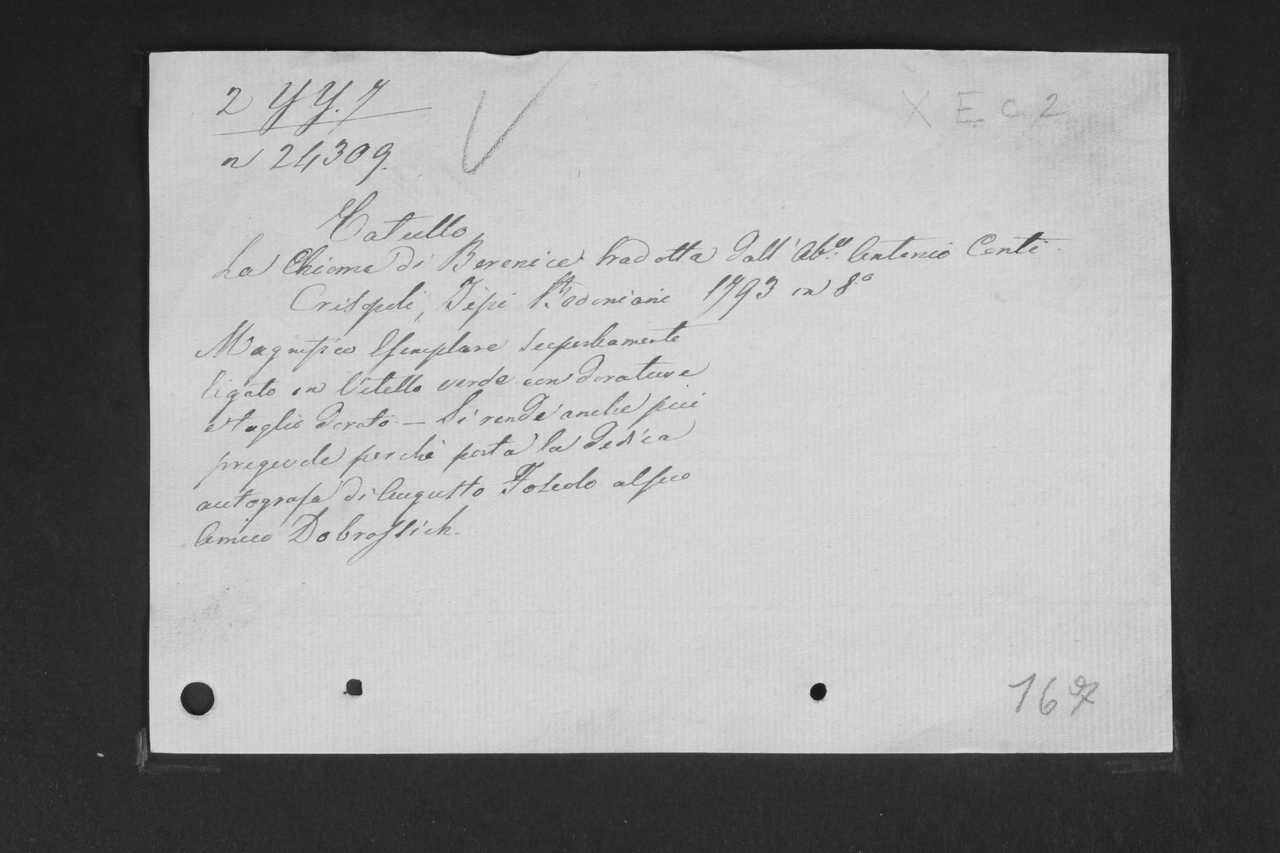 2 YY. 7
X E C 2
n 24309.
Catullo
La Chioma di Berenice tradotta dall' Ab.e Antonio Conti
Crisopoli, Tipi Bodoniani 1793 in 8.o
Magnifico Esemplare superbamente
ligato in Vitello verde con dorature
e taglio dorato — Si rende anche piú
pregevole perchè porta la dedica
autografa di Augusto Foscolo al suo
Amico Dobrassich.